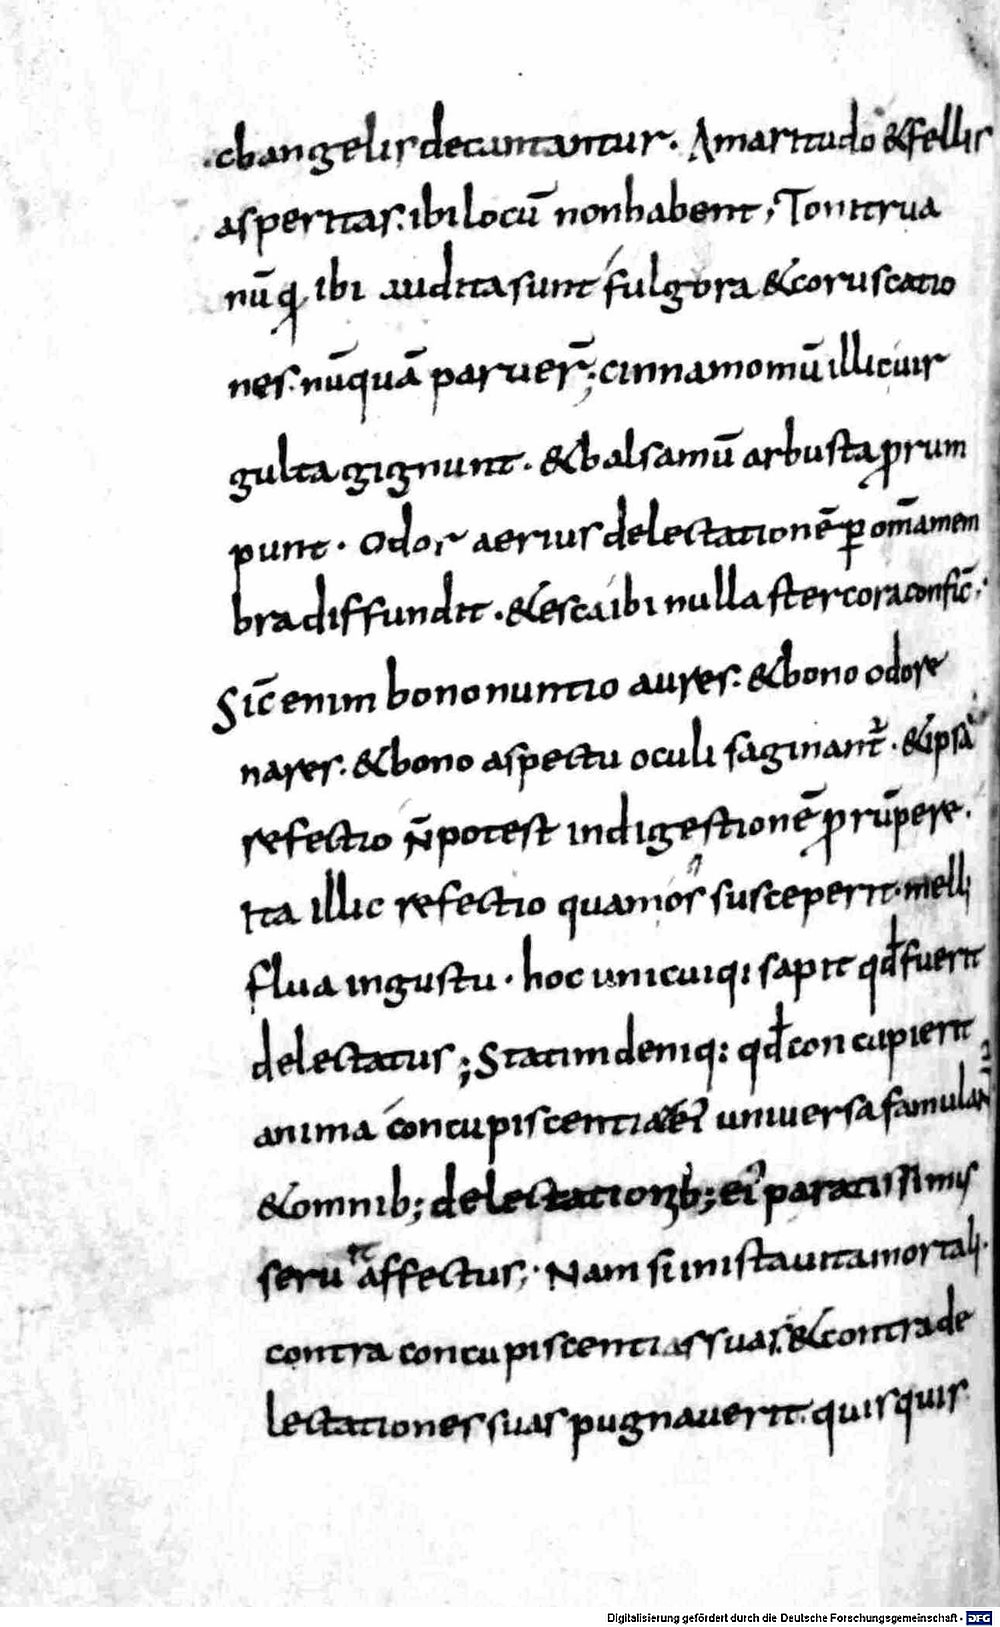 changelis decantantur. Amaritudo & fellis
asperitas. ibi locū non habent; Tonitrua
nūq̄ ibi audita sunt fulgora & coruscatio
nes. nūquā paruer̄; cinnamomū illic uir
gulta gignunt. & balsamū arbusta prorum
punt. Odor aerius delectationē ꝑ om̄a mem
bra diffundit. & esca ibi nulla stercora confic̄.
Sic̄ enim bono nuntio aures. & bono odore
nares. & bono aspectu oculi saginant̄. & ipsa
refectio n̄ potest indigestionē prorūpere.
Ita illic refectio quam os susceperit. melli
flua in gustu. hoc unicuiq; sapit qđ fuerit
delectatus; Statim deniq; qđ concupierit
anima concupiscentiae ei uniuersa famulant̄
& omnib; delectationib; ei paratissimus
seruit affectus; Nam si in ista uita mortali.
contra concupiscentias suas. & contra de
lectationes suas pugnauerit. quisquis
Digitalisierung gefördert durch die Deutsche Forschungsgemeinschaft - DFG